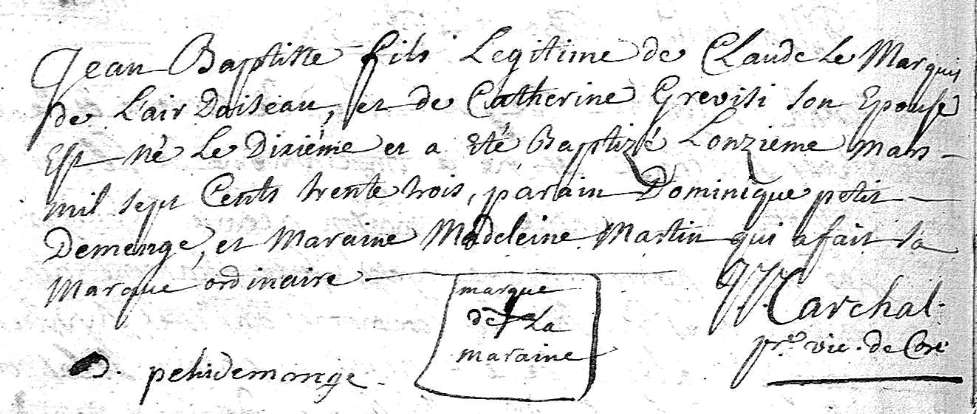 Jean Baptiste fils Legitime de Claude Le Marquis
de L'air Doiseau, et de Catherine Grevisi son Epouse
Est né Le Dixiéme et a été Baptizé Lonzieme mars
mil sept Cents trente trois, parain Dominique petit
Demenge, et Maraine Madeleine Martin qui a fait sa
Marque ordinaire
marque
de la
maraine
D. petidemenge
Marchal
p.re vic. de